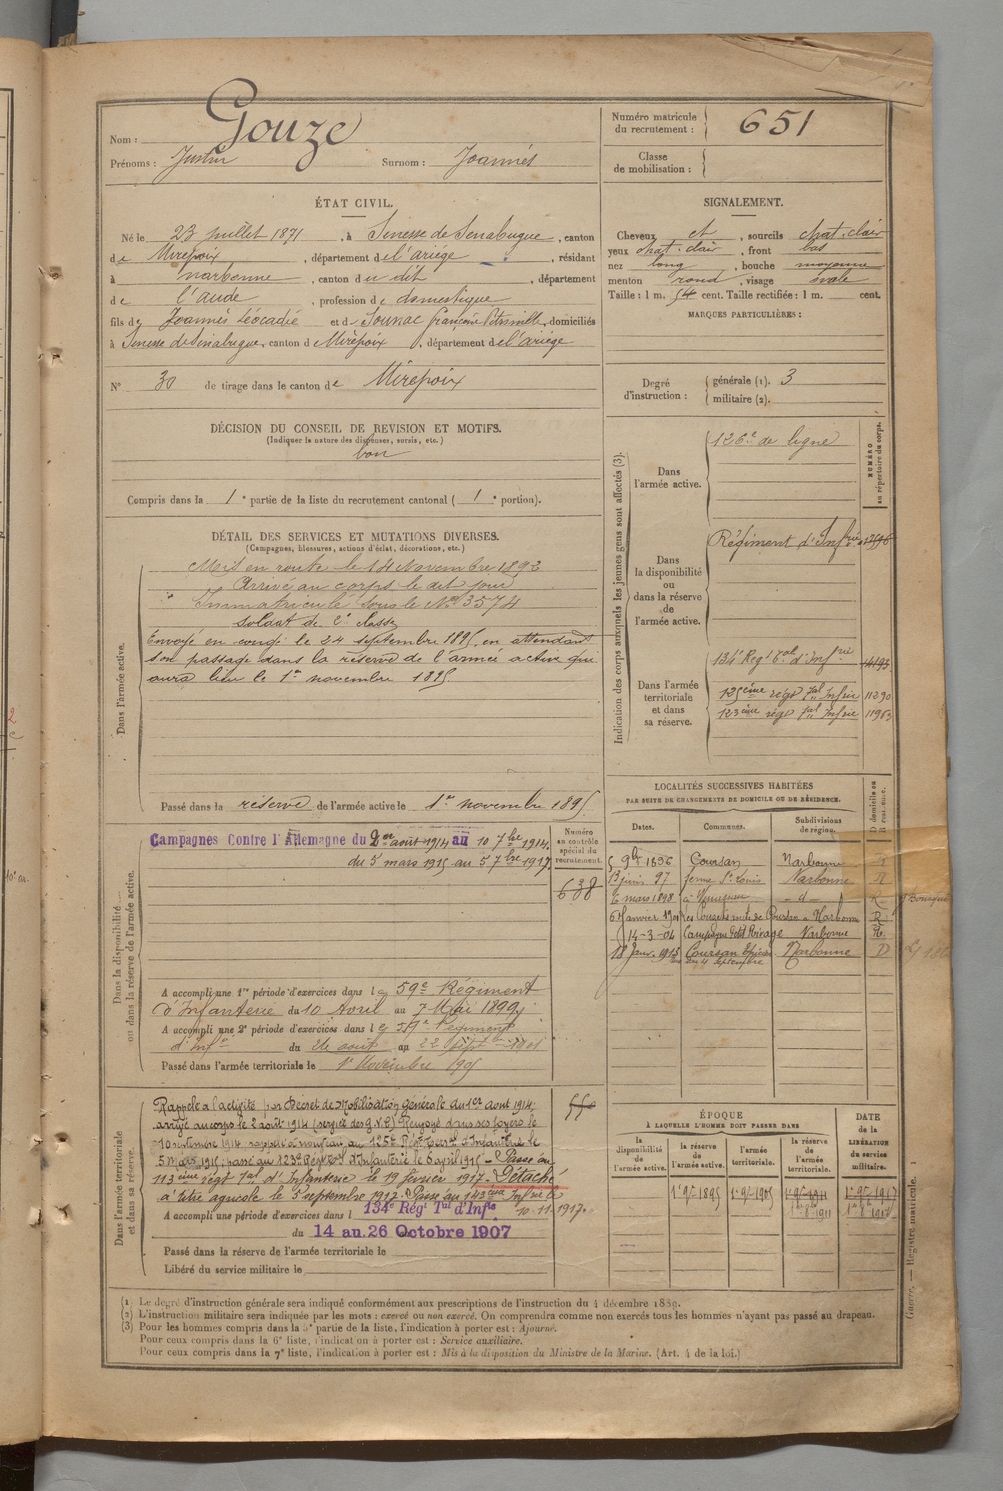 Nom : Gouze
Prénoms : Justin Surnom : Joannés
Numéro matricule du recrutement : 651
Classe de mobilisation :
ÉTAT CIVIL.
Né le 23 juillet 1871, à Senesse de Senabugue, canton
de Mirepoix, département de l'ariége, résidant
à narbonne, canton du dit, département
de l'aude, profession de domestique
fils de Joannés Léocadie et d domiciliés
à Senesse de Senabugue, canton d Mirepoix, département de l'ariége
N° 30 de tirage dans le canton de Mirepoix
DÉCISION DU CONSEIL DE REVISION ET MOTIFS.
(Indiquer la nature des dispenses, sursis, etc.)
bon
Compris dans la 1e partie de la liste du recrutement cantonal (1e portion).
DÉTAIL DES SERVICES ET MUTATIONS DIVERSES.
(Campagnes, blessures, actions d'éclat, décorations, etc.)
Dans l'armée active.
Mis en route le 14 Novembre 1892
Arrivé au corps le dit jour
Immatriculé sous le No 3574
soldat de 2e classe
Envoyé en congé le 24 septembre 1895 en attendant
son passage dans la réserve de l'armée active qui
aura lieu le 1er novembre 1895.
Passé dans la réserve de l'armée active le 1er novembre 1895
Dans la disponibilité ou dans la réserve de l'armée active.
Campagnes Contre l'Allemagne du 2 août 1914 au 10 7bre 1914.
du 5 mars 1915 au 5 7bre 1917
Numéro au contrôle spécial du recrutement.
638
A accompli une 1re période d'exercices dans le 59e Régiment
d'Infanterie du 10 Avril au 7 Mai 1899
A accompli une 2e période d'exercices dans le Régiment
d'Infie du août au
Passé dans l'armée territoriale le 1er Novembre 1905
Dans l'armée territoriale et dans sa réserve.
Rappelé à l'activité par Décret de Mobilisation Générale du 1er Aout 1914.
arrivé au corps le 2 août 1914 (service des G.V.C) Renvoyé dans ses foyers le
10 septembre 1914 rappelé à nouveau au 125e Régt Terral d'Infanterie le
5 Mars 1915, passé au 123e Régt Tal d'Infanterie le 6 avril 1915 - Passé au
113ème régt Tal d'Infanterie le 19 février 1917. Détaché
à titre agricole le 5 septembre 1917. Passé au 143ème Infie le
10.11.1917.
A accompli une période d'exercices dans l 134e Régt Tal d'Infie
du 14 au 26 Octobre 1907
Passé dans la réserve de l'armée territoriale le
Libéré du service militaire le
SIGNALEMENT.
Cheveux et, sourcils chat. clair
yeux chat. clair, front bas
nez long, bouche moyenne
menton rond, visage ovale
Taille : 1 m. 54 cent. Taille rectifiée : 1 m. cent.
MARQUES PARTICULIÈRES :
Degré d'instruction : générale (1). 3
militaire (2).
Indication des corps auxquels les jeunes gens sont affectés (3).
NUMÉRO au répertoire du corps.
Dans l'armée active. 126e de ligne
Dans la disponibilité ou dans la réserve de l'armée active. Régiment d'Infie
Dans l'armée territoriale et dans sa réserve. 134e Regt Tal d'Infrie 14193
125ème régt Tal Infie 11290
123ème régt Tal Infie 11963
LOCALITÉS SUCCESSIVES HABITÉES
PAR SUITE DE CHANGEMENTS DE DOMICILE OU DE RÉSIDENCE.
Dates. Communes. Subdivisions de région. D domicile ou R résidence.
5 9bre 1896 Coursan Narbonne R
13 juin 97 ferme St Louis Narbonne R
mars 1898 - d - R
6 Janvier 1901 route de Coursan à Narbonne R
14-3-04 Campagne Petit Narbonne R.
18 Janv. 1913 Coursan Narbonne D
rue 4 septembre
ÉPOQUE
À LAQUELLE L'HOMME DOIT PASSER DANS
la disponibilité de l'armée active. la réserve de l'armée active. l'armée territoriale. la réserve de l'armée territoriale.
DATE de la LIBÉRATION du service militaire.
1er 9bre 1895 1er 9bre 1905 1er 9bre 1911 1er 9bre 1917
Guerre. — Registre matricule. 1
(1) Le degré d'instruction générale sera indiqué conformément aux prescriptions de l'instruction du 4 décembre 1889.
(2) L'instruction militaire sera indiquée par les mots : exercé ou non exercé. On comprendra comme non exercés tous les hommes n'ayant pas passé au drapeau.
(3) Pour les hommes compris dans la 5e partie de la liste, l'indication à porter est : Ajourné.
Pour ceux compris dans la 6e liste, l'indication à porter est : Service auxiliaire.
Pour ceux compris dans la 7e liste, l'indication à porter est : Mis à la disposition du Ministre de la Marine. (Art. 4 de la loi.)